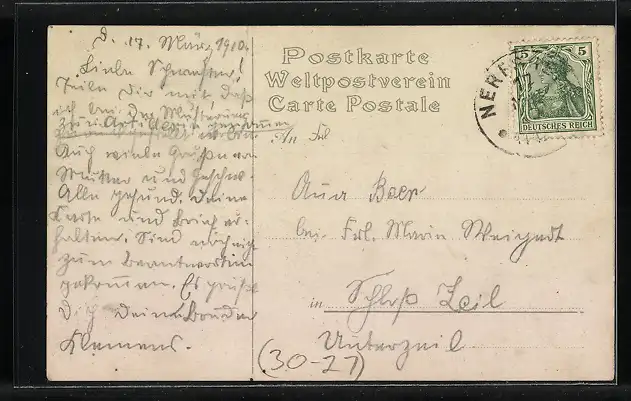 D. 17. März 1910.
Liebe Schwester!
Teile Dir mit daß
ich bei der Musterung
zur
Auch viele Grüße von
Mutter und Geschw.
Alle gesund. Deine
Karte und Brief er-
halten. Sind noch nie
zum beantworten
gekommen. Es grüßt
Dich Dein Bruder
Klemens.
Postkarte
Weltpostverein
Carte Postale
5 5
DEUTSCHES REICH
NERE
An Frl
Anna Baer
bei Frl. Maria Weigadt
in Schloß Zeil
Unterzeil
(30-27)